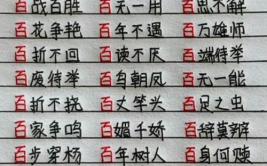 百战百胜 百无一用 百思不解
百花争艳 百年不遇 百万雄师
百折不回 百读不厌 百端待举
百废待举 百鸟朝凤 百无一能
百折不挠 百丈竿头 百足之虫
百家争鸣 百媚千娇 百辞莫辩
百步穿杨 百年树人 百身何赎